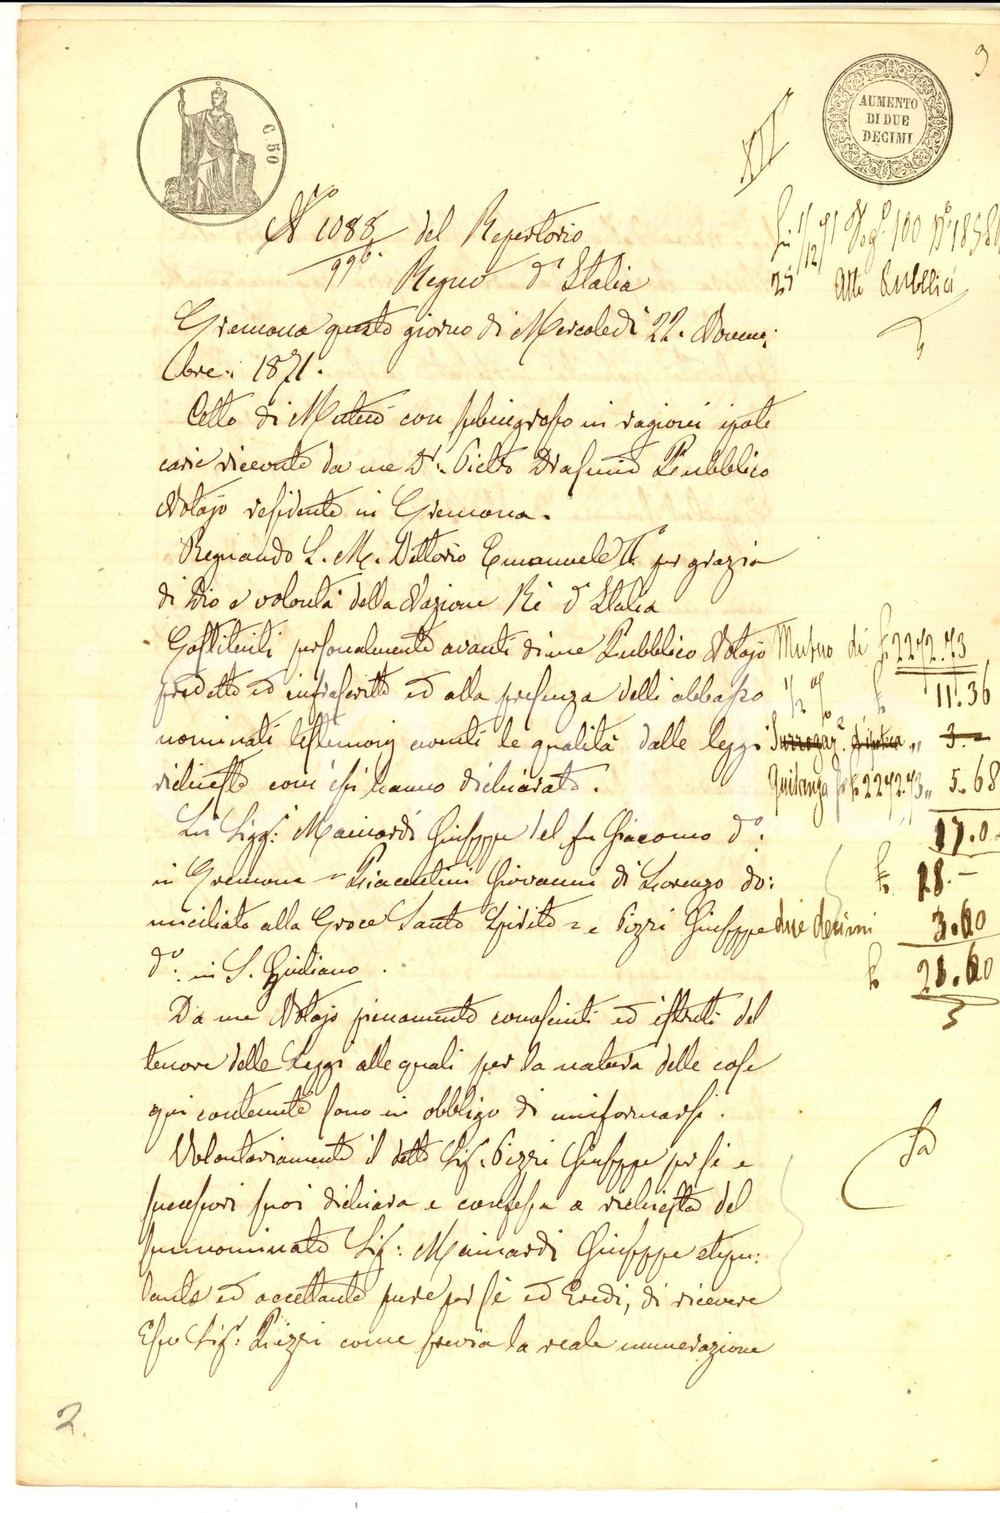 C. 50
AUMENTO
DI DUE
DECIMI
XII
N° 1088 del Repertorio
996
Regno d'Italia
Cremona questo giorno di Mercoledì 22. Novem:
bre: 1871.
Atti Pubblici
Atto di Mutuo con subingresso in ragioni ipote
carie ricevuto da me Dr. Pietro Pubblico
Notajo residente in Cremona.
Regnando S. M. Vittorio Emanuele II. per grazia
di Dio e volontà della Nazione Rè d'Italia
Costituiti personalmente avanti di me Pubblico Notajo
predetto ed infrascritto ed alla presenza delli abbasso
nominati testimonj aventi le qualità dalle leggi
richieste com'essi hanno dichiarato.
Li Sigg.: Mainardi Giuseppe del fu Giacomo d°:
in Cremona = Piacentini Giovanni di Lorenzo do:
miciliato alla Croce Santo Spirito = e Pizzi Giuseppe
d°: in S. Giuliano.
Da me Notajo pienamente conosciuti ed istrutti del
tenore delle Leggi alle quali per la natura delle cose
qui contenute sono in obbligo di uniformarsi.
Volontariamente il detto Sig. Pizzi Giuseppe per sè e
successori suoi dichiara e confessa a richiesta del
summominato Sig: Mainardi Giuseppe stipu:
lante ed accettante pure per sè ed Eredi, di ricevere
Esso Sigr: Pizzi come previa la reale numerazione
Mutuo di £. 2272.73
1/2 % £ 11.36
Surrogaz.e Ipoteca „ 3.-
Quitanza p £ 2272.73 „ 5.68
£. 18.-
due decimi 3.60
£ 21.60
2.